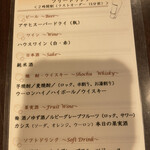 ~ビール ~Beer~
アサヒスーパードライ(瓶)
~ワイン~ Wine~
ハウスワイン(白・赤)
~日本酒~ Sake~
純米酒
~焼酎・ウイスキー~ Shochu Whisky~
芋焼酎/麦焼酎/(ロック、水割り、お湯割り)
ウーロンハイ/ハイボール/ウイスキー
~果実酒~ Fruit Wine~
梅酒/ゆず酒/ルビーグレープフルーツ(ロック、サワー)
カシス(ソーダ、オレンジ、ウーロン)本日の果実酒
~ソフトドリンク~ Soft Drink~